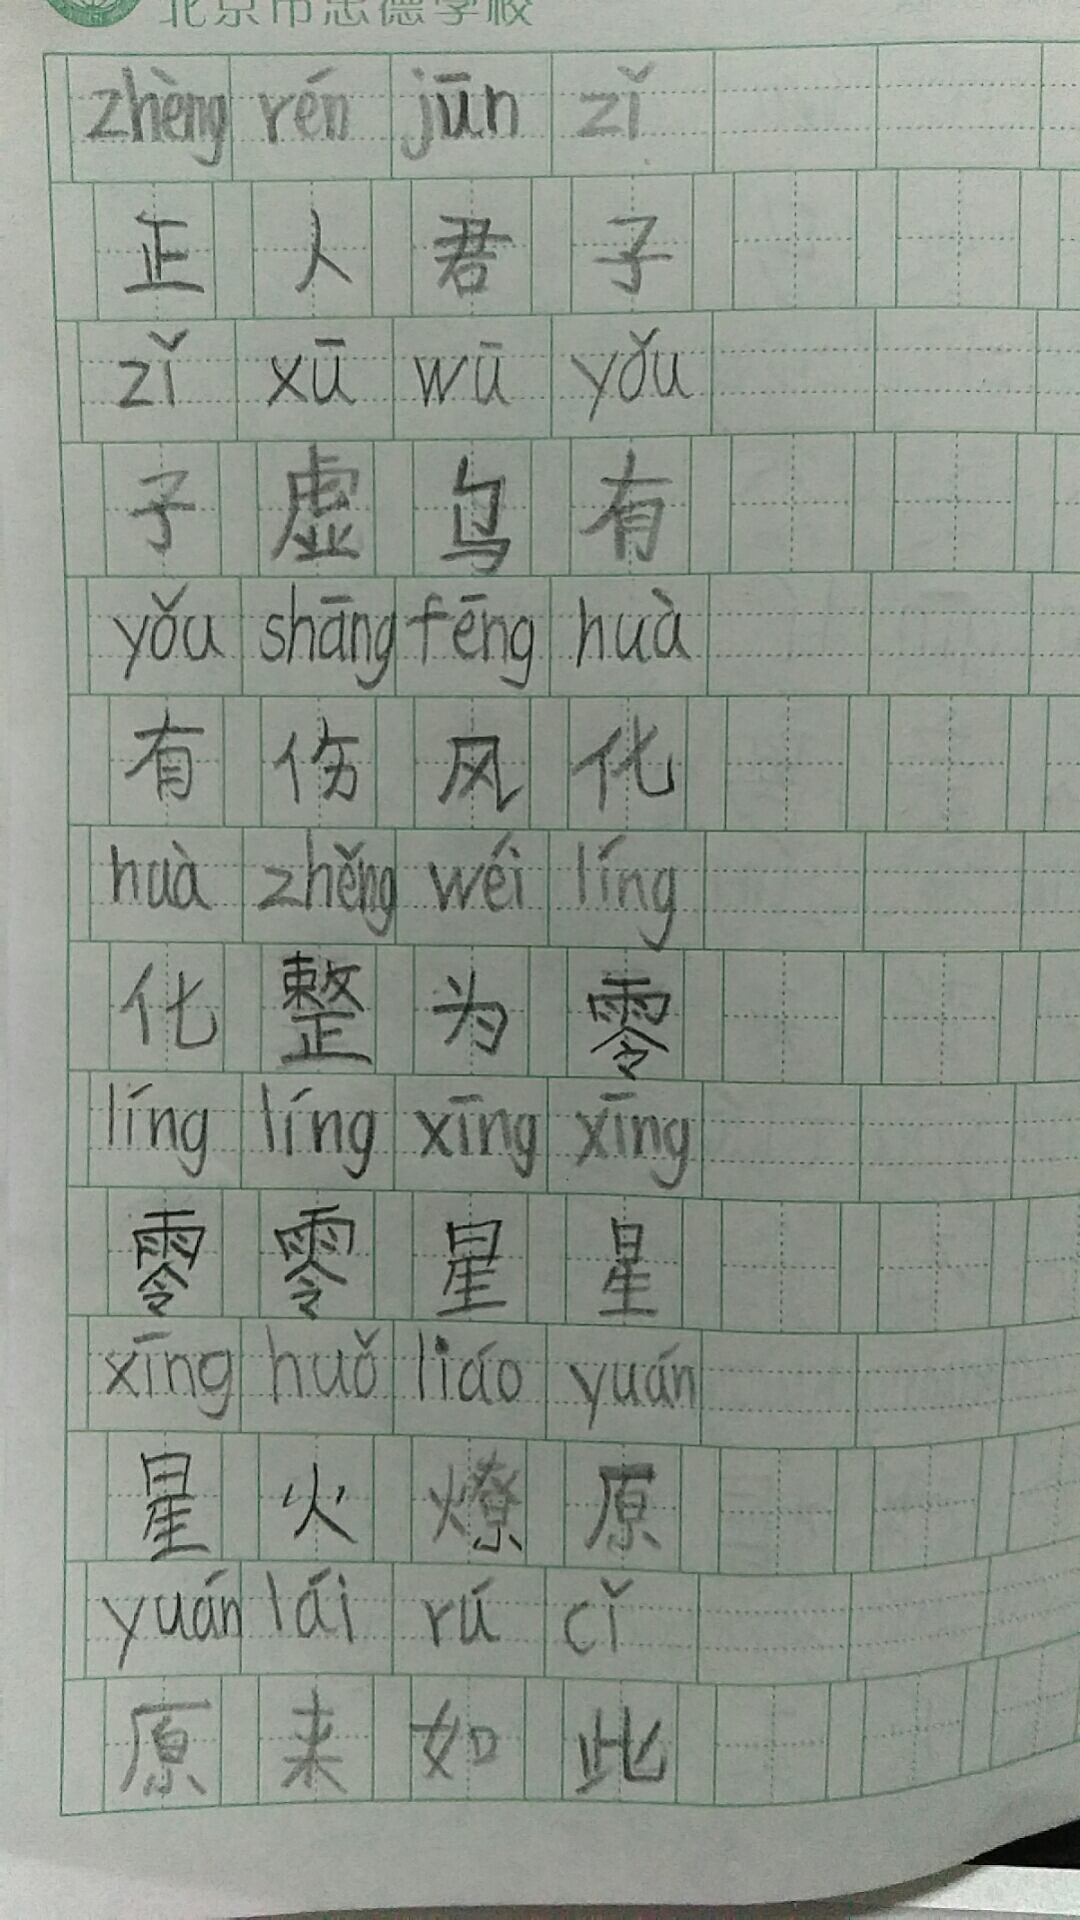 北京市忠德学校
zhèng rén jūn zǐ
正人君子
zǐ xū wū yǒu
子虚乌有
yǒu shāng fēng huà
有伤风化
huà zhěng wéi líng
化整为零
líng líng xīng xīng
零零星星
xīng huǒ liáo yuán
星火燎原
yuán lái rú cǐ
原来如此